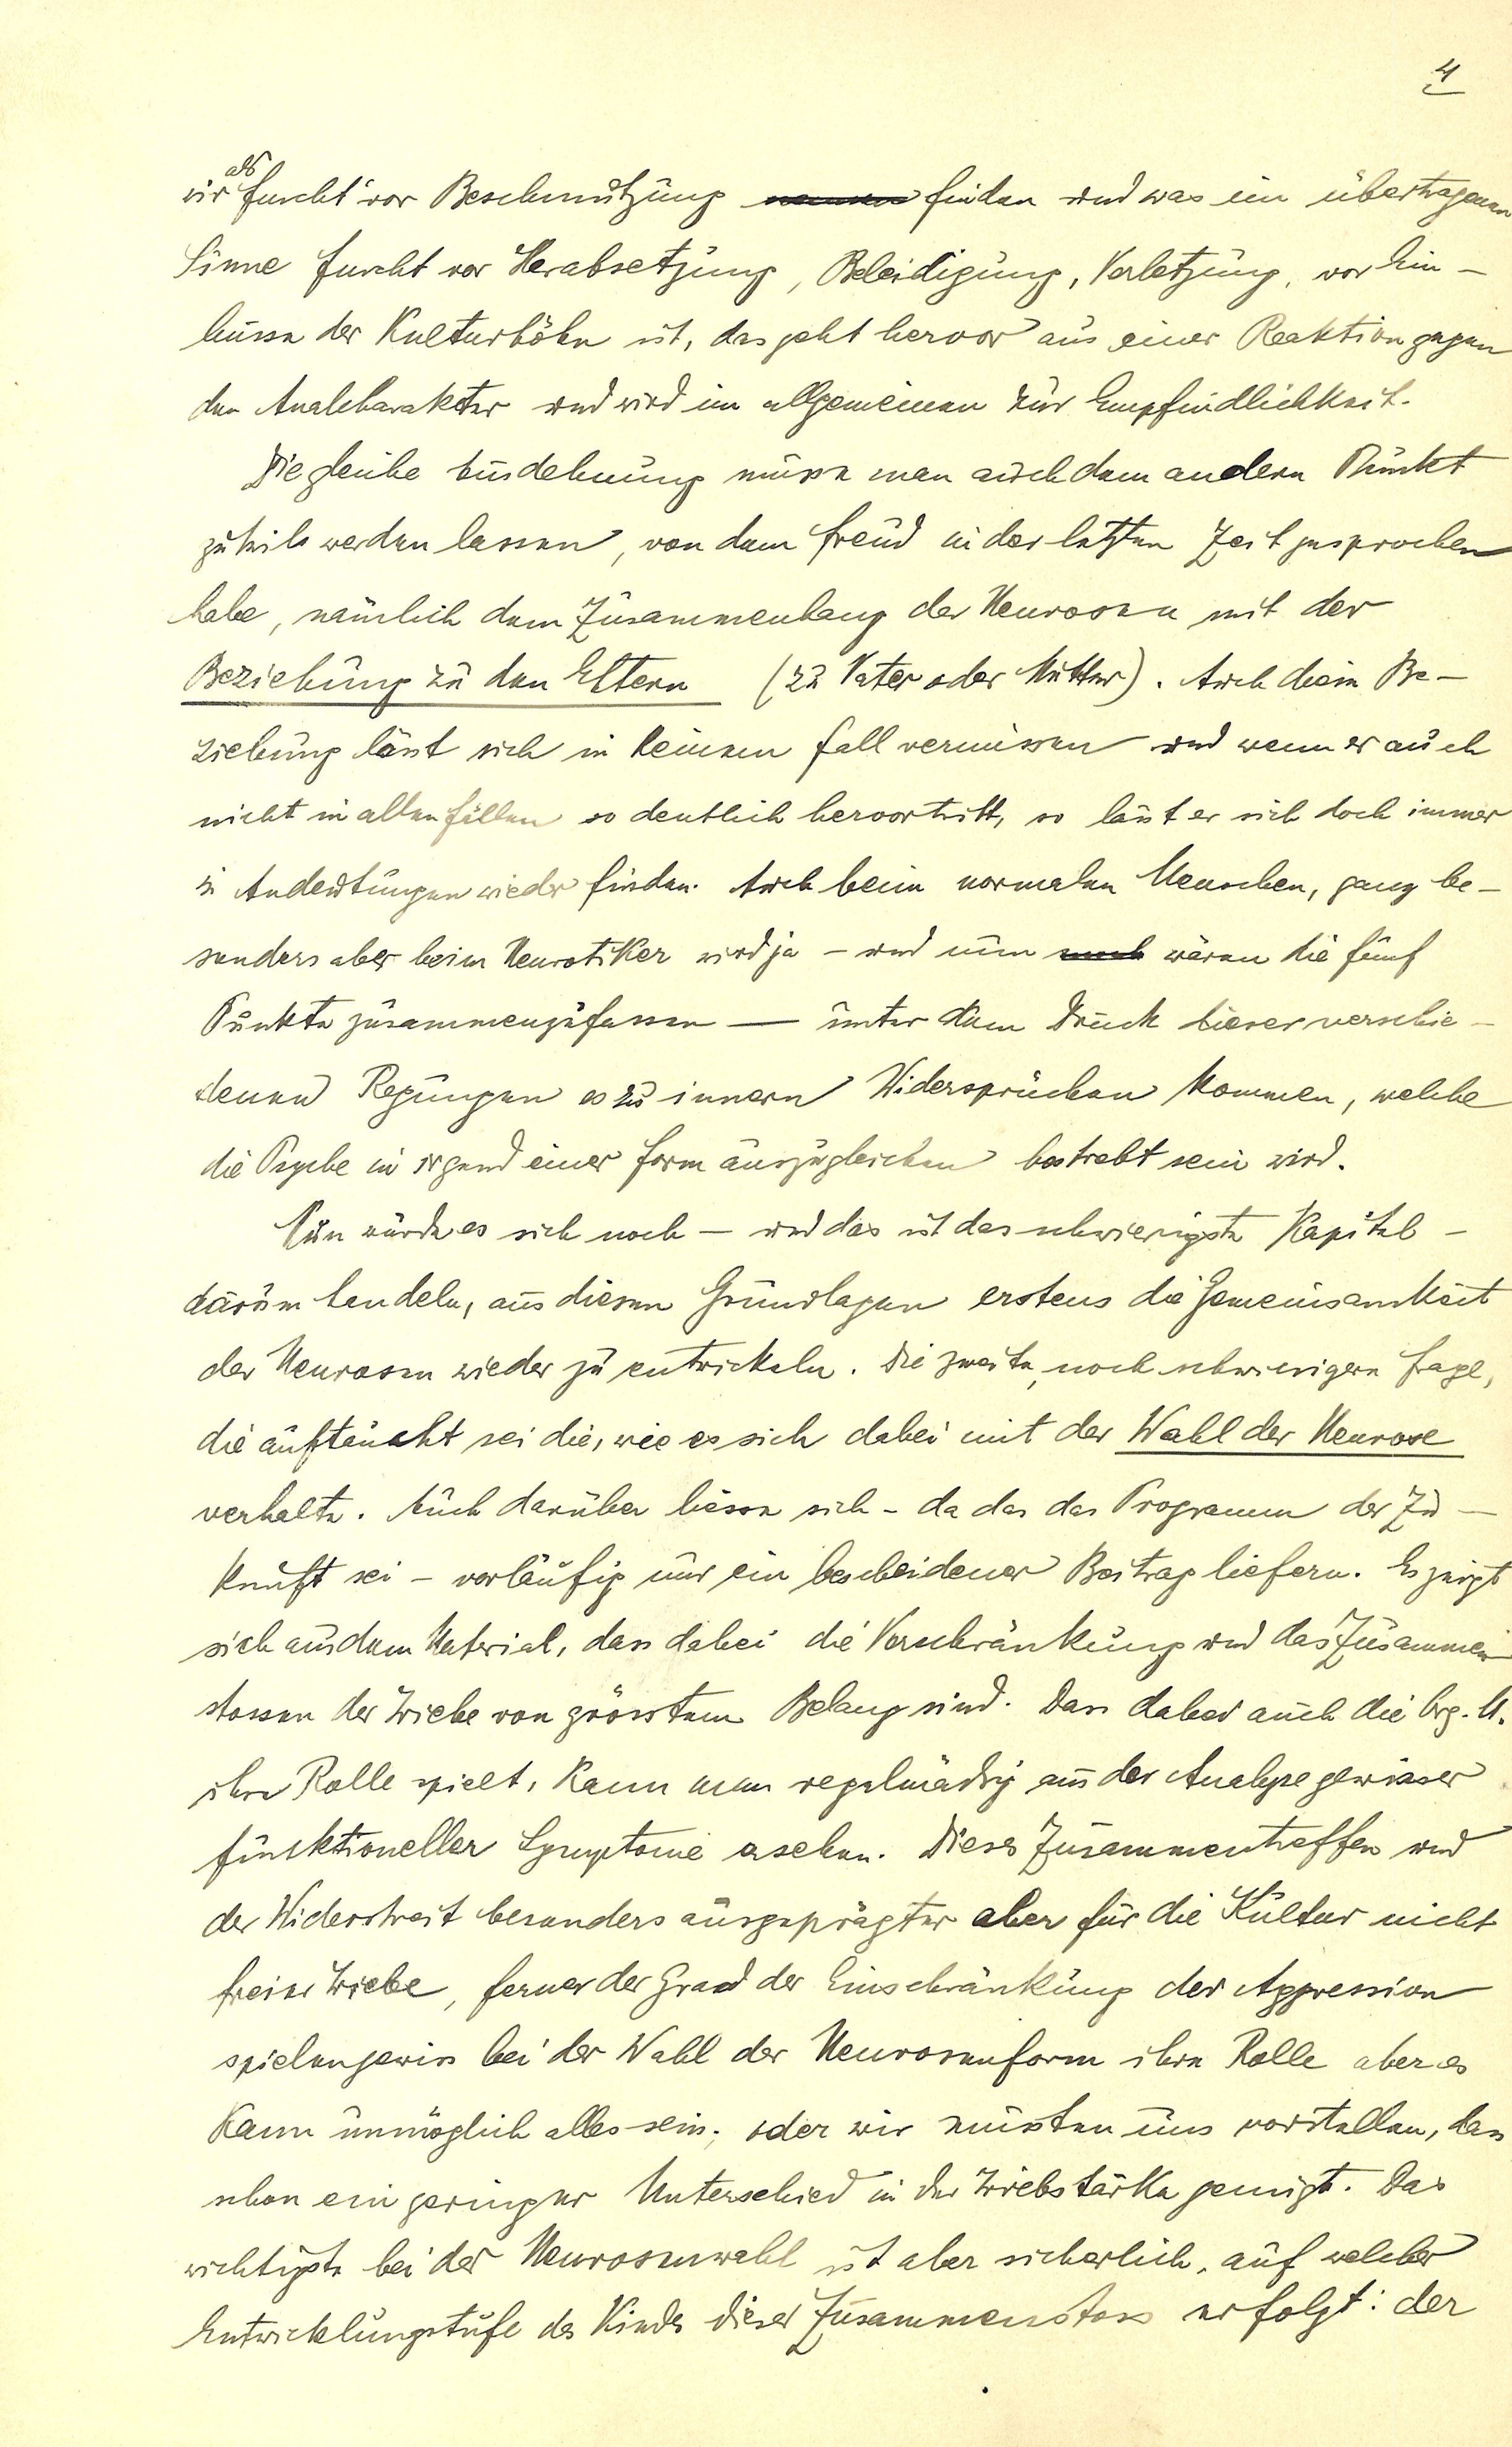 4
wir als Furcht vor Beschmutzung nennen finden und was im übertragenen
Sinne Furcht vor Herabsetzung, Beleidigung, Verletzung, vor Ein-
busse der Kulturhöhe ist, das geht hervor aus einer Reaktion gegen
den Analcharakter und wird im allgemeinen zur Empfindlichkeit.
Die gleiche Ausdehnung müsse man auch dem andern Punkt
zuteil werden lassen, von dem Freud in der letzten Zeit gesprochen
habe, nämlich dem Zusammenhang der Neurosen mit der
Beziehung zu den Eltern (zu Vater oder Mutter). Auch diese Be-
ziehung lässt sich in keinem Fall vermissen und wenn er auch
nicht in allen Fällen so deutlich hervortritt, so lässt er sich doch immer
in Andeutungen wieder finden. Auch beim normalen Menschen, ganz be-
sonders aber beim Neurotiker wird ja - und nun wären die fünf
Punkte zusammenzufassen — unter dem Druck dieser verschie-
denen Regungen es zu innern Widersprüchen kommen, welche
die Psyche in irgend einer Form auszugleichen bestrebt sein wird.
Nun würde es sich noch - und das ist das schwierigste Kapitel -
darum handeln, aus diesen Grundlagen erstens die Gemeinsamkeit
der Neurosen wieder zu entwickeln. Die zweite, noch schwierigere Frage,
die auftaucht sei die, wie es sich dabei mit der Wahl der Neurose
verhalte. Auch darüber liesse sich - da das das Programm der Zu-
kunft sei - vorläufig nur ein bescheidener Beitrag liefern. Es zeigt
sich aus dem Material, dass dabei die Verschränkung und das Zusammen
stossen der Triebe von grösstem Belang sind. Dass dabei auch die Org. M.
ihre Rolle spielt, kann man regelmässig aus der Analyse gewisser
funktioneller Symptome ersehen. Dieses Zusammentreffen und
der Widerstreit besonders ausgeprägter aber für die Kultur nicht
freier Triebe, ferner der Grad der Einschränkung der Aggression
spielen gewiss bei der Wahl der Neurosenform ihre Rolle aber es
kann unmöglich alles sein; oder wir müssten uns vorstellen, dass
schon ein geringer Unterschied in der Triebstärke genügt. Das
wichtigste bei der Neurosenwahl ist aber sicherlich, auf welcher
Entwicklungstufe des Kindes dieser Zusammenstoss erfolgt: der